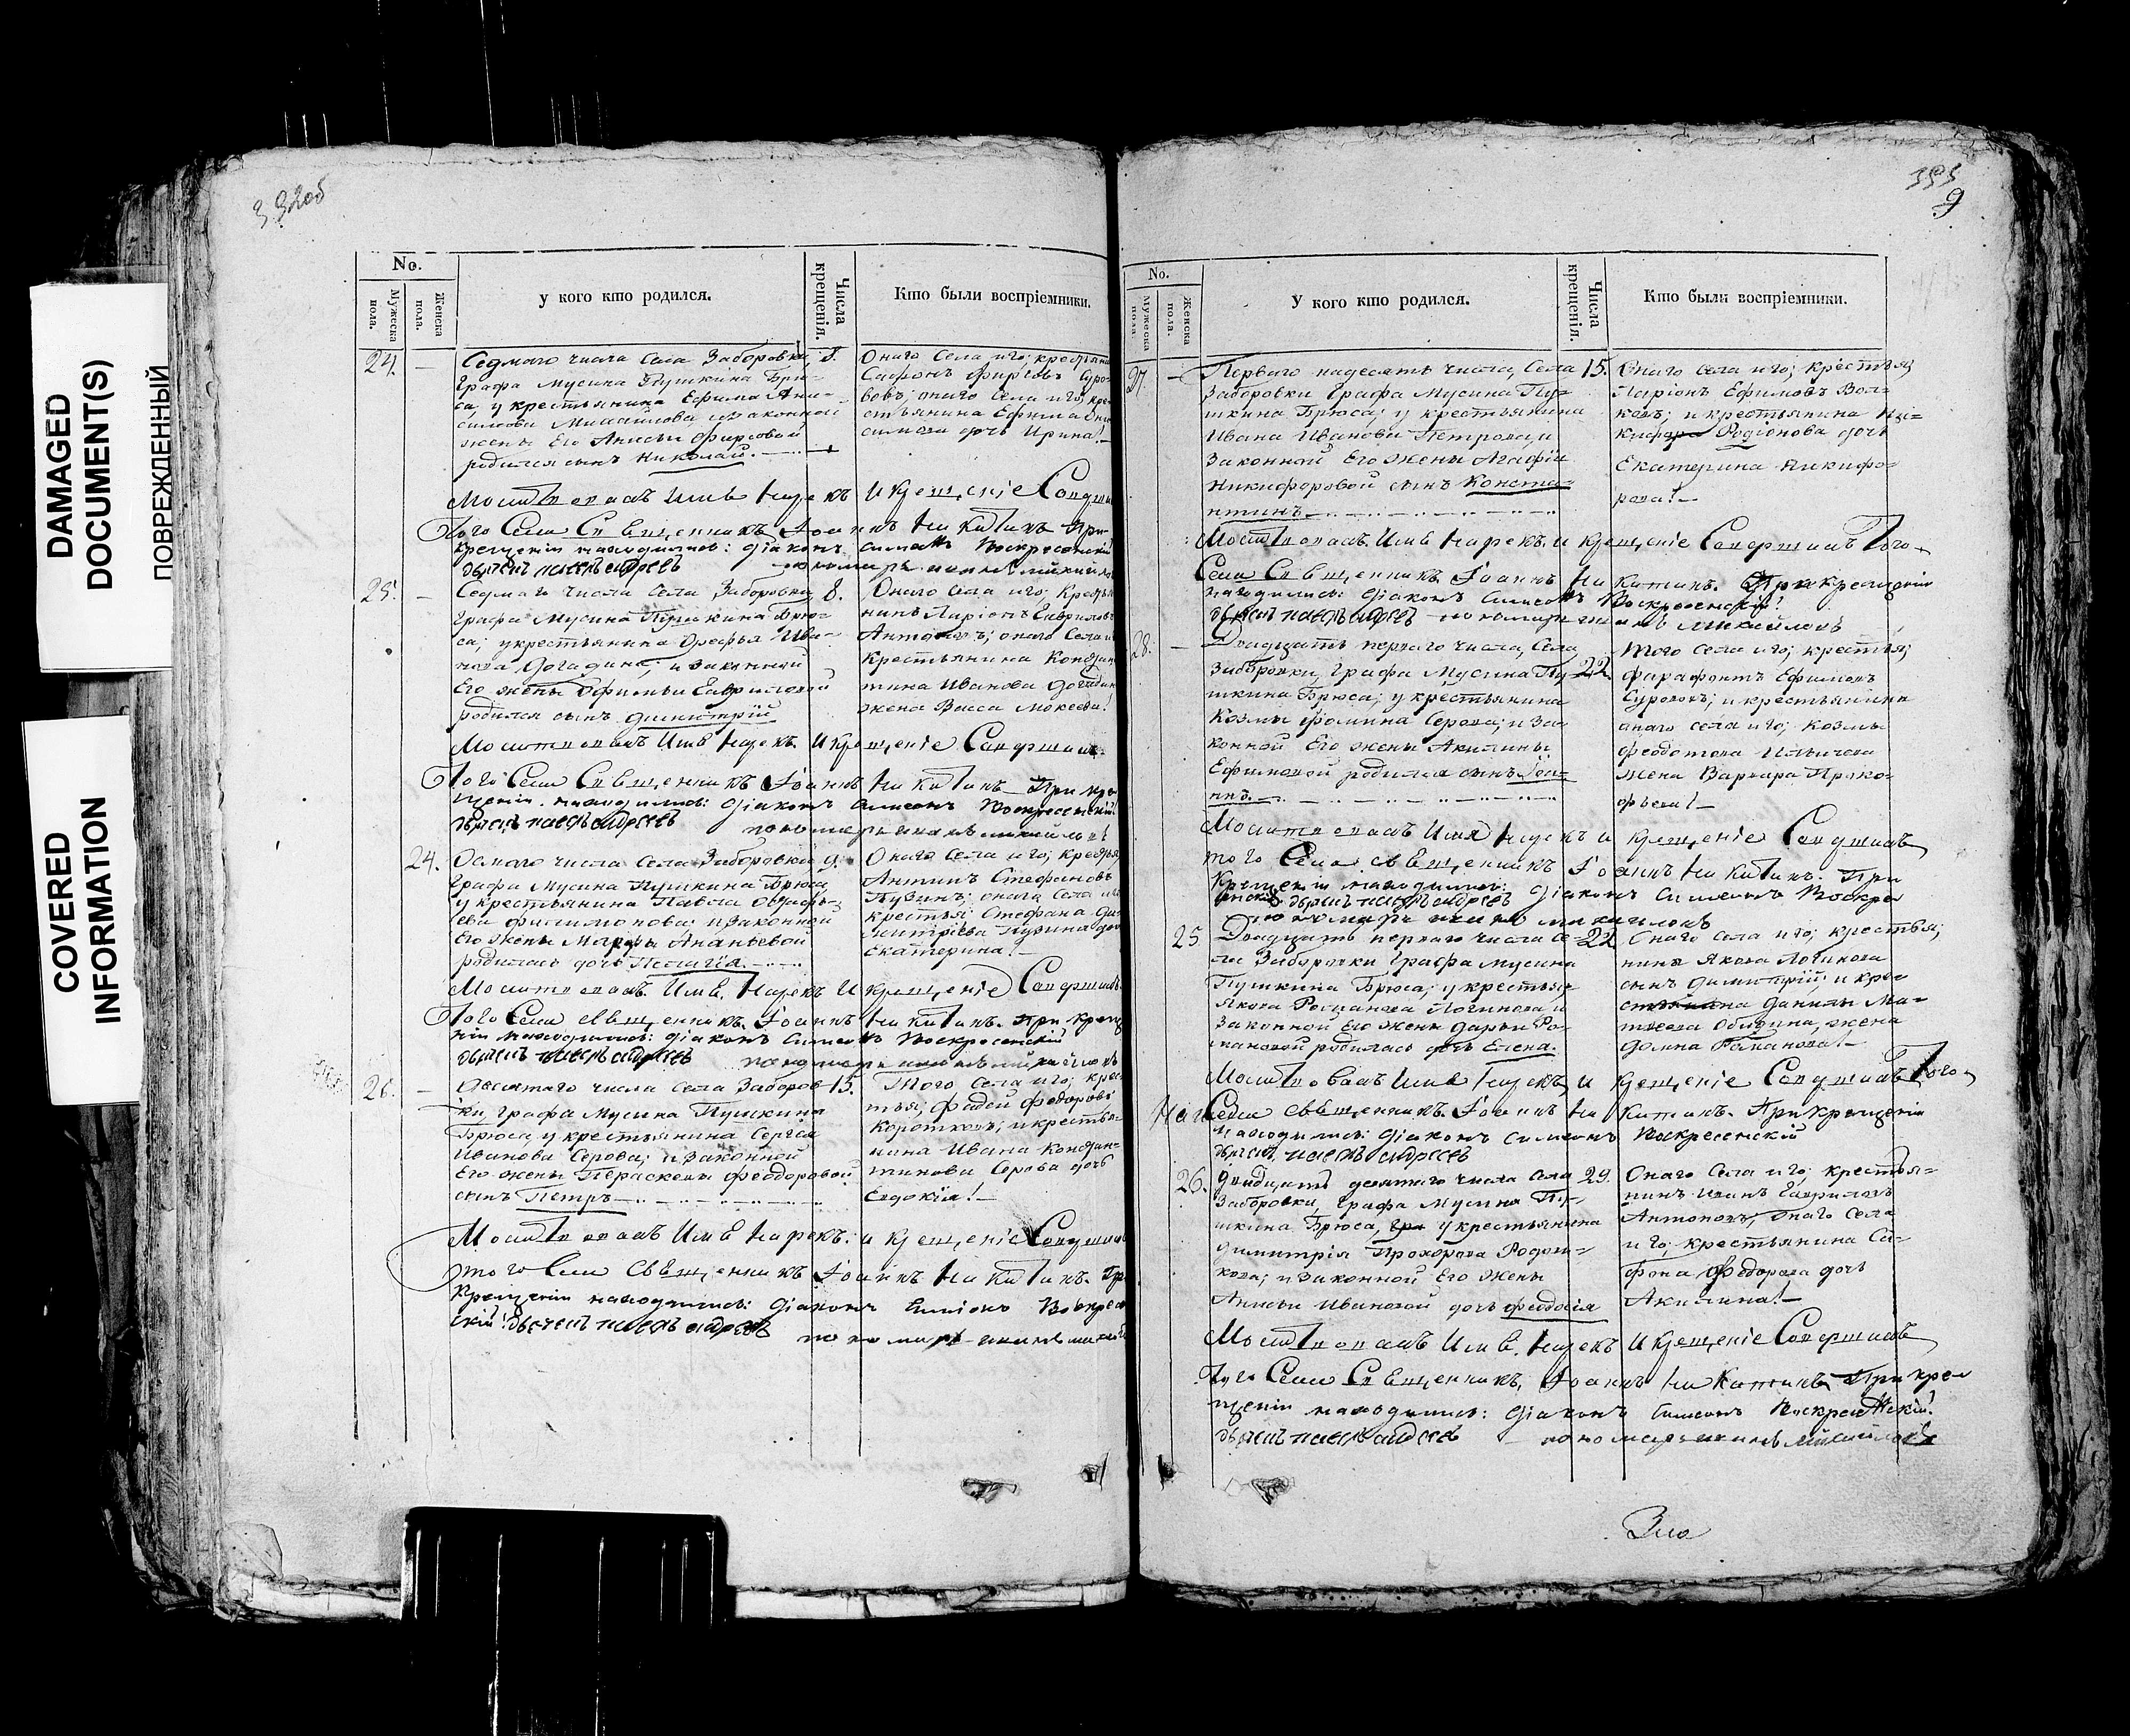 DAMAGED
DOCUMENT(S)
ПОВРЕЖДЕННЫЙ
COVERED
INFORMATION
392об
No.
Мужеска пола.
Женска пола.
у кого кто родился.
Числа крещенія.
Кто были воспріемники.
24. — Седмаго числа Села Заборовки,
графа Мусина Пушкина Брю-
са, у крестьянина Ефима Ани-
симова Михайлова и законной
жены Его Анисьи Фирсовой
родился сынъ Николай.
8.
Онаго Села и го; крестьяни
Сафонъ Фирсовъ Суро-
вовъ; онаго Села и го; кре-
стьянина Ефима Они-
симова дочь Ирина!—
Молитвовалъ Имя Нарекъ и крещеніе Соверши
Того Села Священникъ Іоаннъ Никитинъ При
крещеніи находились: Діаконъ Симеонъ Воскресенскій
дьячекъ павелъ андреевъ пономарь
25. — Седмаго числа Села Заборовки,
графа Мусина Пушкина Брю-
са; у крестьянина Ива-
нова Догадина; и законной
Его жены Офимьи Гавриловой
родился сынъ Димитрій
8.
Онаго Села и го; Крестья
нинъ Ларіонъ Гавриловъ
Антоновъ; онаго Села и
крестьянина Констан
тина Иванова Догадин
жена Васса Мокеева!
Молитвовалъ Имя Нарекъ. и крещеніе Совершилъ
Того Села Священникъ Іоаннъ Никитинъ При кре
щеніи находились: Діаконъ Симеонъ Воскресенскій
дьячекъ павелъ андреевъ пономарь
24. Осмаго числа Села Заборовки
графа Мусина Пушкина Брюса,
у крестьянина Павла
ева Филимонова; и законной
Его жены Марфы Ананьевой
родилась дочь Пелагія.
9.
Онаго Села и го; крестья
Антипъ Стефановъ
Пузинъ; онаго Села и го
крестья; Стефана Ди-
митріева Пузина доч
Екатерина!—
Молитвовалъ. Имя. Нарекъ и крещеніе Совершилъ.
Того Села священникъ. Іоаннъ Никитинъ. При креще
ніи находились: Діаконъ Симеонъ Воскресенскій
дьячекъ павелъ андреевъ пономарь
26. — Десятаго числа Села Заборов-
ки, графа Мусина Пушкина
Брюса, у крестьянина Сергея
Иванова Серова; и законной
Его жены Параскевы Феодоровой
сынъ Петръ—
15.
Того Села и го; крес-
тья; Фадей Федоровъ
Коротковъ; и крестья-
нина Ивана Констан-
тинова Серова дочь
Евдокія!—
Молитвовалъ Имя Нарекъ. и крещеніе Совершилъ
того Села священникъ Іоаннъ Никитинъ. Пр
Крещеніи находились: Діаконъ Симіонъ Воскресен
скій! дьячекъ павелъ андреевъ пономарь
393
9
No.
Мужеска пола.
Женска пола.
У кого кто родился.
Числа крещенія.
Кто были воспріемники.
27. — Перваго надесять числа, Села
Заборовки графа Мусина Пу-
шкина Брюса; у крестьянина
Ивана Иванова Петрова, и
Законной Его жены Агафіи
Никифоровой сынъ Конста-
нтинъ
15.
Онаго Села и го; крестьян;
Ларіонъ Ефимовъ Вол-
ковъ; и крестьянина Ни-
кифора Родіонова дочь
Екатерина Никифо-
рова!—
Молитвовалъ. Имя Нарекъ. и крещеніе Совершилъ Того
Села Священникъ Іоаннъ Никитинъ. При крещеніи
находились: Діаконъ Симеонъ Воскресенскій!
дьячекъ павелъ андреевъ пономарь михайловъ
28. — Двадцать перваго числа, Села
Заборовки, графа Мусина Пу-
шкина Брюса; у крестьянина
Козмы Фомина Серова; и за-
конной Его жены Акилины
Ефимовой родился сынъ Іоа-
ннъ.—
22
Того Села и го; крестья;
Фарафонтъ Ефимовъ
Сурововъ; и крестьянина
онаго села и го; Козмы
Феодотова Ильичева
жена Варвара Проко-
фьева!—
Молитвовалъ Имя Нарекъ и крещеніе Совершилъ
того Села священникъ Іоаннъ Никитинъ. При
Крещеніи находились: Діаконъ Симеонъ Воскре
сенскій дьячекъ павелъ андреевъ
пономарь михайловъ
25 Двадцать перваго числа Се-
ла Заборовки графа Мусина
Пушкина Брюса; у крестья-
Якова Логинова и
Законной Его жены Дарьи Ро-
мановой родилась дочь Елена.
22
Онаго Села и го; крестья;
нина Якова Логинова
сынъ Димитрій; и кре-
стьянина Данилы Ма-
твеева Обидина, жена
Домна Романова!—
Молитвовалъ Имя Нарекъ, и крещеніе Совершилъ Того
Села священникъ. Іоаннъ Никитинъ. При крещеніи
Находились: Діаконъ Симеонъ Воскресенскій
дьячекъ, павелъ андреевъ
26. Двадцать девятаго числа Села
Заборовки, графа Мусина Пу-
шкина Брюса, у крестьянина
Димитрія Прохорова
кова; и законной Его жены
Анисьи Ивановой дочь Феодосія
29.
Онаго Села и го; крестья-
нинъ Иванъ Гавриловъ
Антоновъ, Онаго Села
и го; крестьянина Са-
фона Федорова дочь
Акилина!—
Молитвовалъ Имя. Нарекъ и крещеніе Совершилъ
Того Села Священникъ, Іоаннъ Никитинъ При кре-
щеніи находились: Діаконъ Симеонъ Воскресенскій!
дьячекъ павелъ андреевъ — пономарь михайловъ